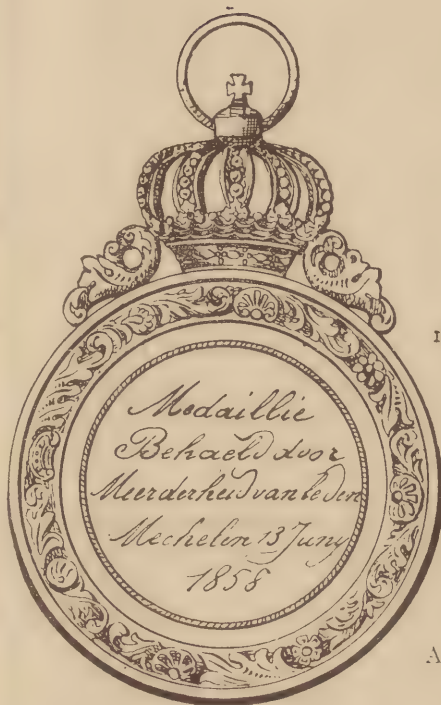 Medaillie
Behaeld door
Meerderheid van leden
Mechelen 13 Juny
1858
I
A